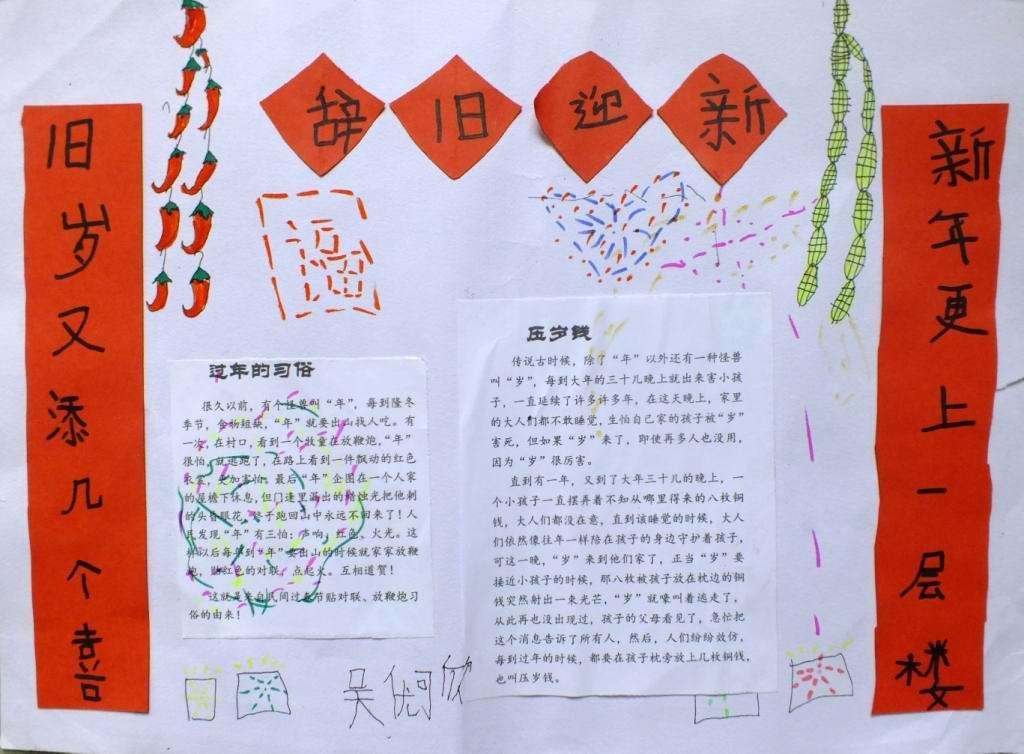 辞旧迎新
旧岁又添几个喜
新年更上一层楼
福
过年的习俗
很久以前，有个怪兽叫“年”，每到隆冬
季节，食物短缺，“年”就要出山找人吃。有
一次，在村口，看到一个牧童在放鞭炮，“年”
很怕，就逃跑了，在路上看到一件飘动的红色
衣裳，更加害怕。最后“年”企图在一个人家
的屋檐下休息，但门缝里漏出的蜡烛光把他刺
的头昏眼花，终于跑回山中永远不回来了！人
民发现“年”有三怕：声响，红色，火光。这
以后每年到“年”要出山的时候就家家放鞭
炮，贴红色的对联，点起火。互相道贺！
这就是来自民间过春节贴对联、放鞭炮习
俗的由来！
压岁钱
传说古时候，除了“年”以外还有一种怪兽
叫“岁”，每到大年的三十儿晚上就出来害小孩
子，一直延续了许多许多年，在这天晚上，家里
的大人们都不敢睡觉，生怕自己家的孩子被“岁”
害死，但如果“岁”来了，即使再多人也没用，
因为“岁”很厉害。
直到有一年，又到了大年三十儿的晚上，一
个小孩子一直摆弄着不知从哪里得来的八枚铜
钱，大人们都没在意，直到该睡觉的时候，大人
们依然像往年一样陪在孩子的身边守护着孩子，
可这一晚，“岁”来到他们家了，正当“岁”要
接近小孩子的时候，那八枚被孩子放在枕边的铜
钱突然射出一束光芒，“岁”就嚎叫着逃走了，
从此再也没出现过，孩子的父母看见了，急忙把
这个消息告诉了所有人，然后，人们纷纷效仿，
每到过年的时候，都要在孩子枕旁放上几枚铜钱，
也叫压岁钱。
吴佩欣